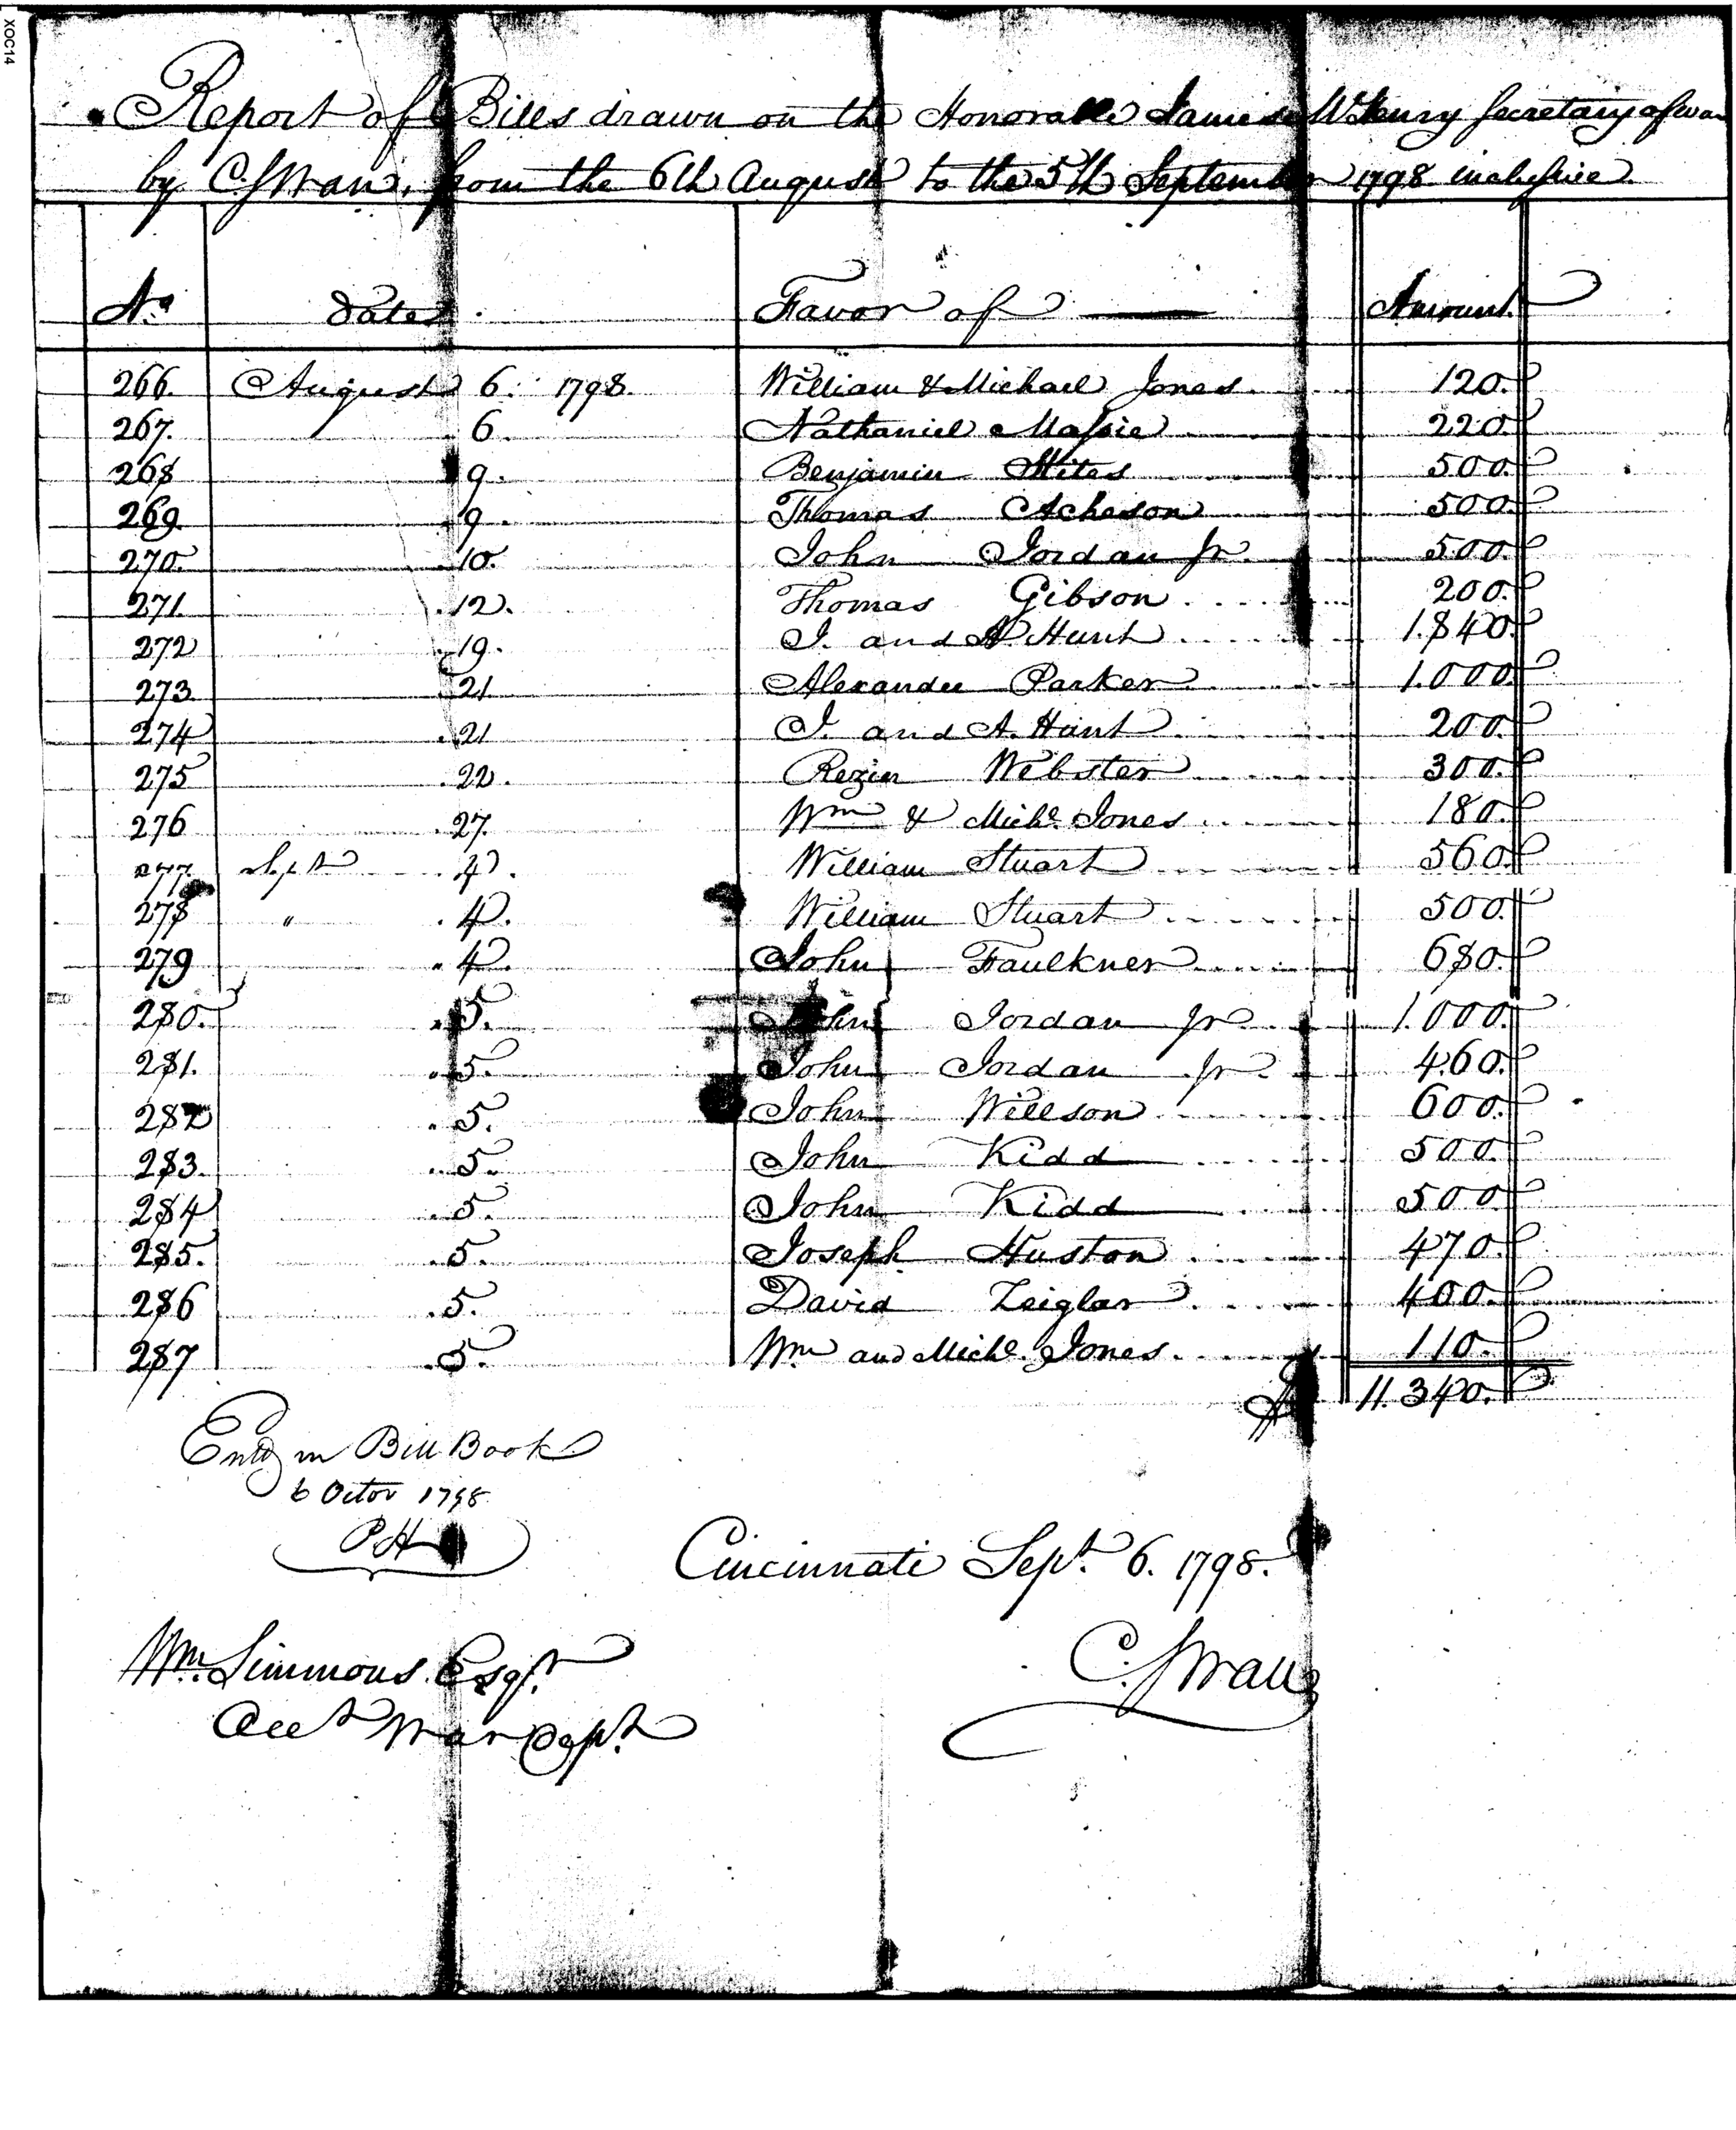 XOC14
Report of Bills drawn on the Honorable James McHenry Secretary of War
by C. Swan, from the 6th August to the 5th September 1798 inclusive.
No. Dates. Favor of Amount.
266. August 6. 1798. William & Michael Jones. 120.
267. 6. Nathaniel Massie 220.
268 9. Benjamin Stites 500.
269. 9. Thomas Acheson 500.
270. 10. John Jordan Jr. 500.
271. 12. Thomas Gibson 200.
272 19. J. and A. Hunt 1.840.
273 21 Alexander Parker 1.000.
274 21 J. and A. Hunt 200.
275 22. Rezin Webster 300.
276 27. Wm & Michl. Jones 180.
277. Sept. 4. William Stuart 560.
278 " 4. William Stuart 500.
279 4. John Faulkner 680.
280. 5. John Jordan Jr. 1.000.
281. 5. John Jordan Jr. 460.
282 5. John Willson 600.
283. 5. John Kidd 500.
284 5. John Kidd 500
285. 5. Joseph Huston 470.
286 5. David Zeiglar 400.
287 5. Wm and Michl. Jones. 110.
$ 11.340.
Entd in Bill Book
6 Octor 1798
PH
Cincinnati Sept. 6. 1798.
Wm. Simmons Esqr.
Acct War Dept.
C. Swan